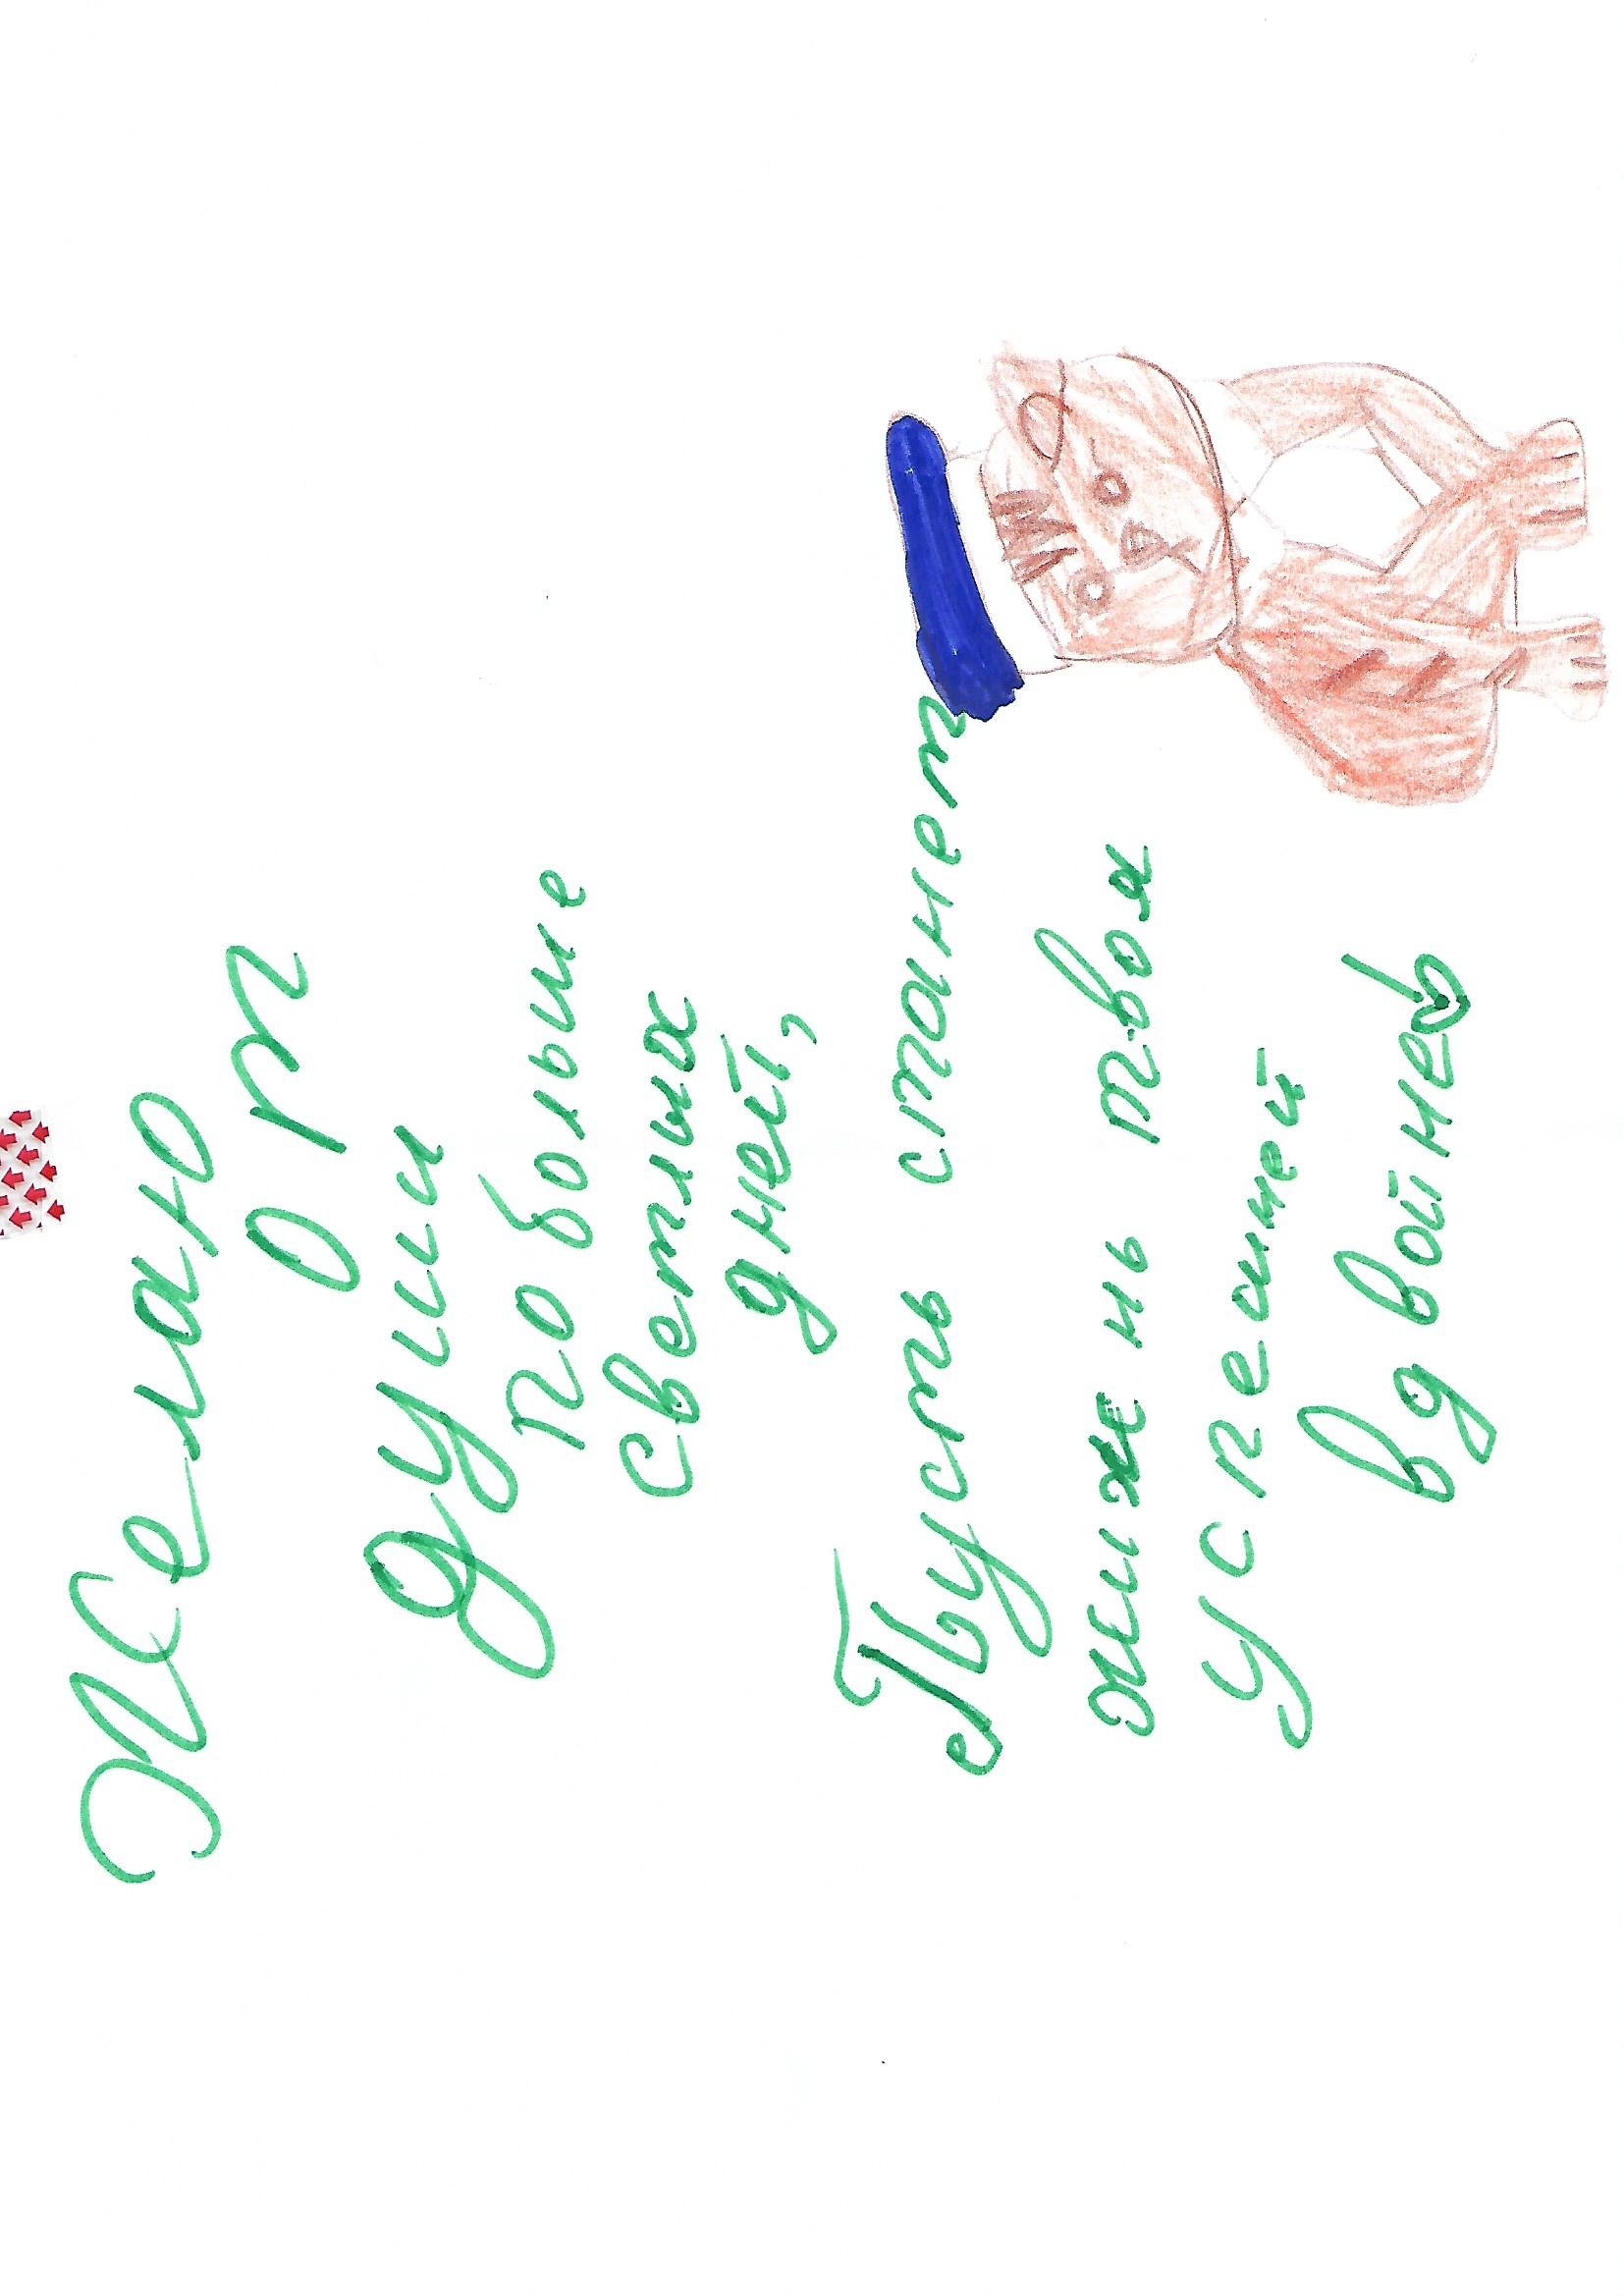 Желаю
от
души
побольше
светлых
дней,
Пусть станет
жижнь твоя
успешней
вдвойне!